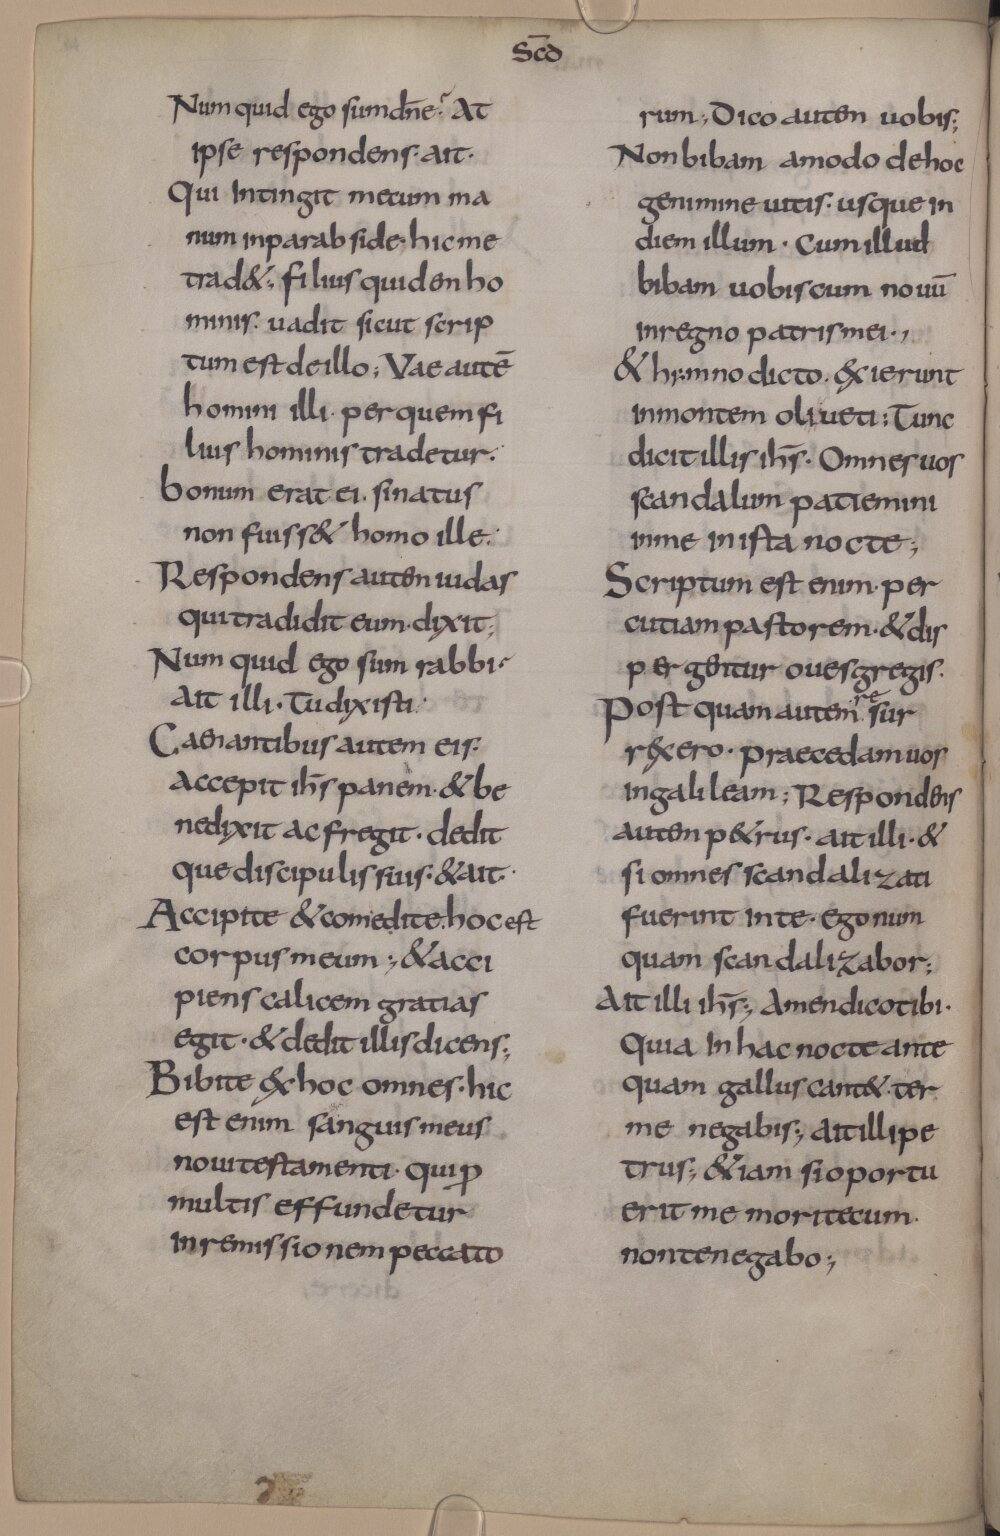 Scd̄
Num quid ego sum dn̄e? At
ipse respondens· ait·
Qui intingit mecum ma
num inparabside· hic me
trad&; filius quidem ho
minis· uadit sicut scrip
tum est deillo; Vae autē
homini illi· per quem fi
lius hominis tradetur·
bonum erat ei· sinatus
non fuiss& homo ille·
Respondens autem iudas
qui tradidit eum· dixit;
Num quid ego sum rabbi?
ait illi· Tu dixisti·
Caenantibus autem eis·
accepit ih̄s panem· & be
nedixit ac fregit· dedit
que discipulis suis· & ait·
Accipite & comedite· hoc est
corpus meum; & acci
piens calicem gratias
egit· & dedit illis dicens;
Bibite &x hoc omnes· hic
est enim sanguis meus
noui testamenti· qui ꝓ
multis effundetur
in remissionem peccato
rum; Dico autem uobis;
Non bibam amodo dehoc
genimine uitis· usque in
diem illum· Cum illud
bibam uobiscum nouū
inregno patris mei·,
& hymno dicto· &xierunt
inmontem oliueti; Tunc
dicit illis ih̄s· Omnes uos
scandalum patiemini
inme in ista nocte;
Scriptum est enim· per
cutiam pastorem· & dis
pergentur oues gregis·
Post quam autem resur
r&xero· praecedam uos
ingalileam; Respondens
autem p&rus· ait illi· &
si omnes scandalizati
fuerint in te· ego num
quam scandalizabor;
Ait illi ih̄s; Amen dico tibi·
Quia in hac nocte ante
quam gallus cant& ter
me negabis; ait illi pe
trus; &iam si oportu
erit me mori tecum·
non te negabo;